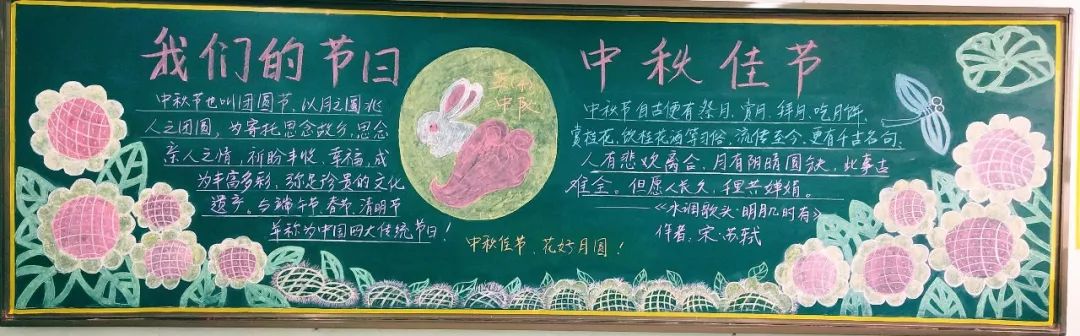 我们的节日
中秋节也叫团圆节，以月之圆兆
人之团圆，为寄托思念故乡，思念
亲人之情，祈盼丰收、幸福，成
为丰富多彩，弥足珍贵的文化
遗产。与端午节、春节、清明节
并称为中国四大传统节日！
中队
中秋佳节、花好月圆！
中秋佳节
中秋节自古便有祭月、赏月、拜月、吃月饼、
赏桂花、饮桂花酒等习俗，流传至今，更有千古名句：
人有悲欢离合，月有阴晴圆缺，此事古
难全。但愿人长久，千里共婵娟。
——《水调歌头·明月几时有》
作者：宋·苏轼